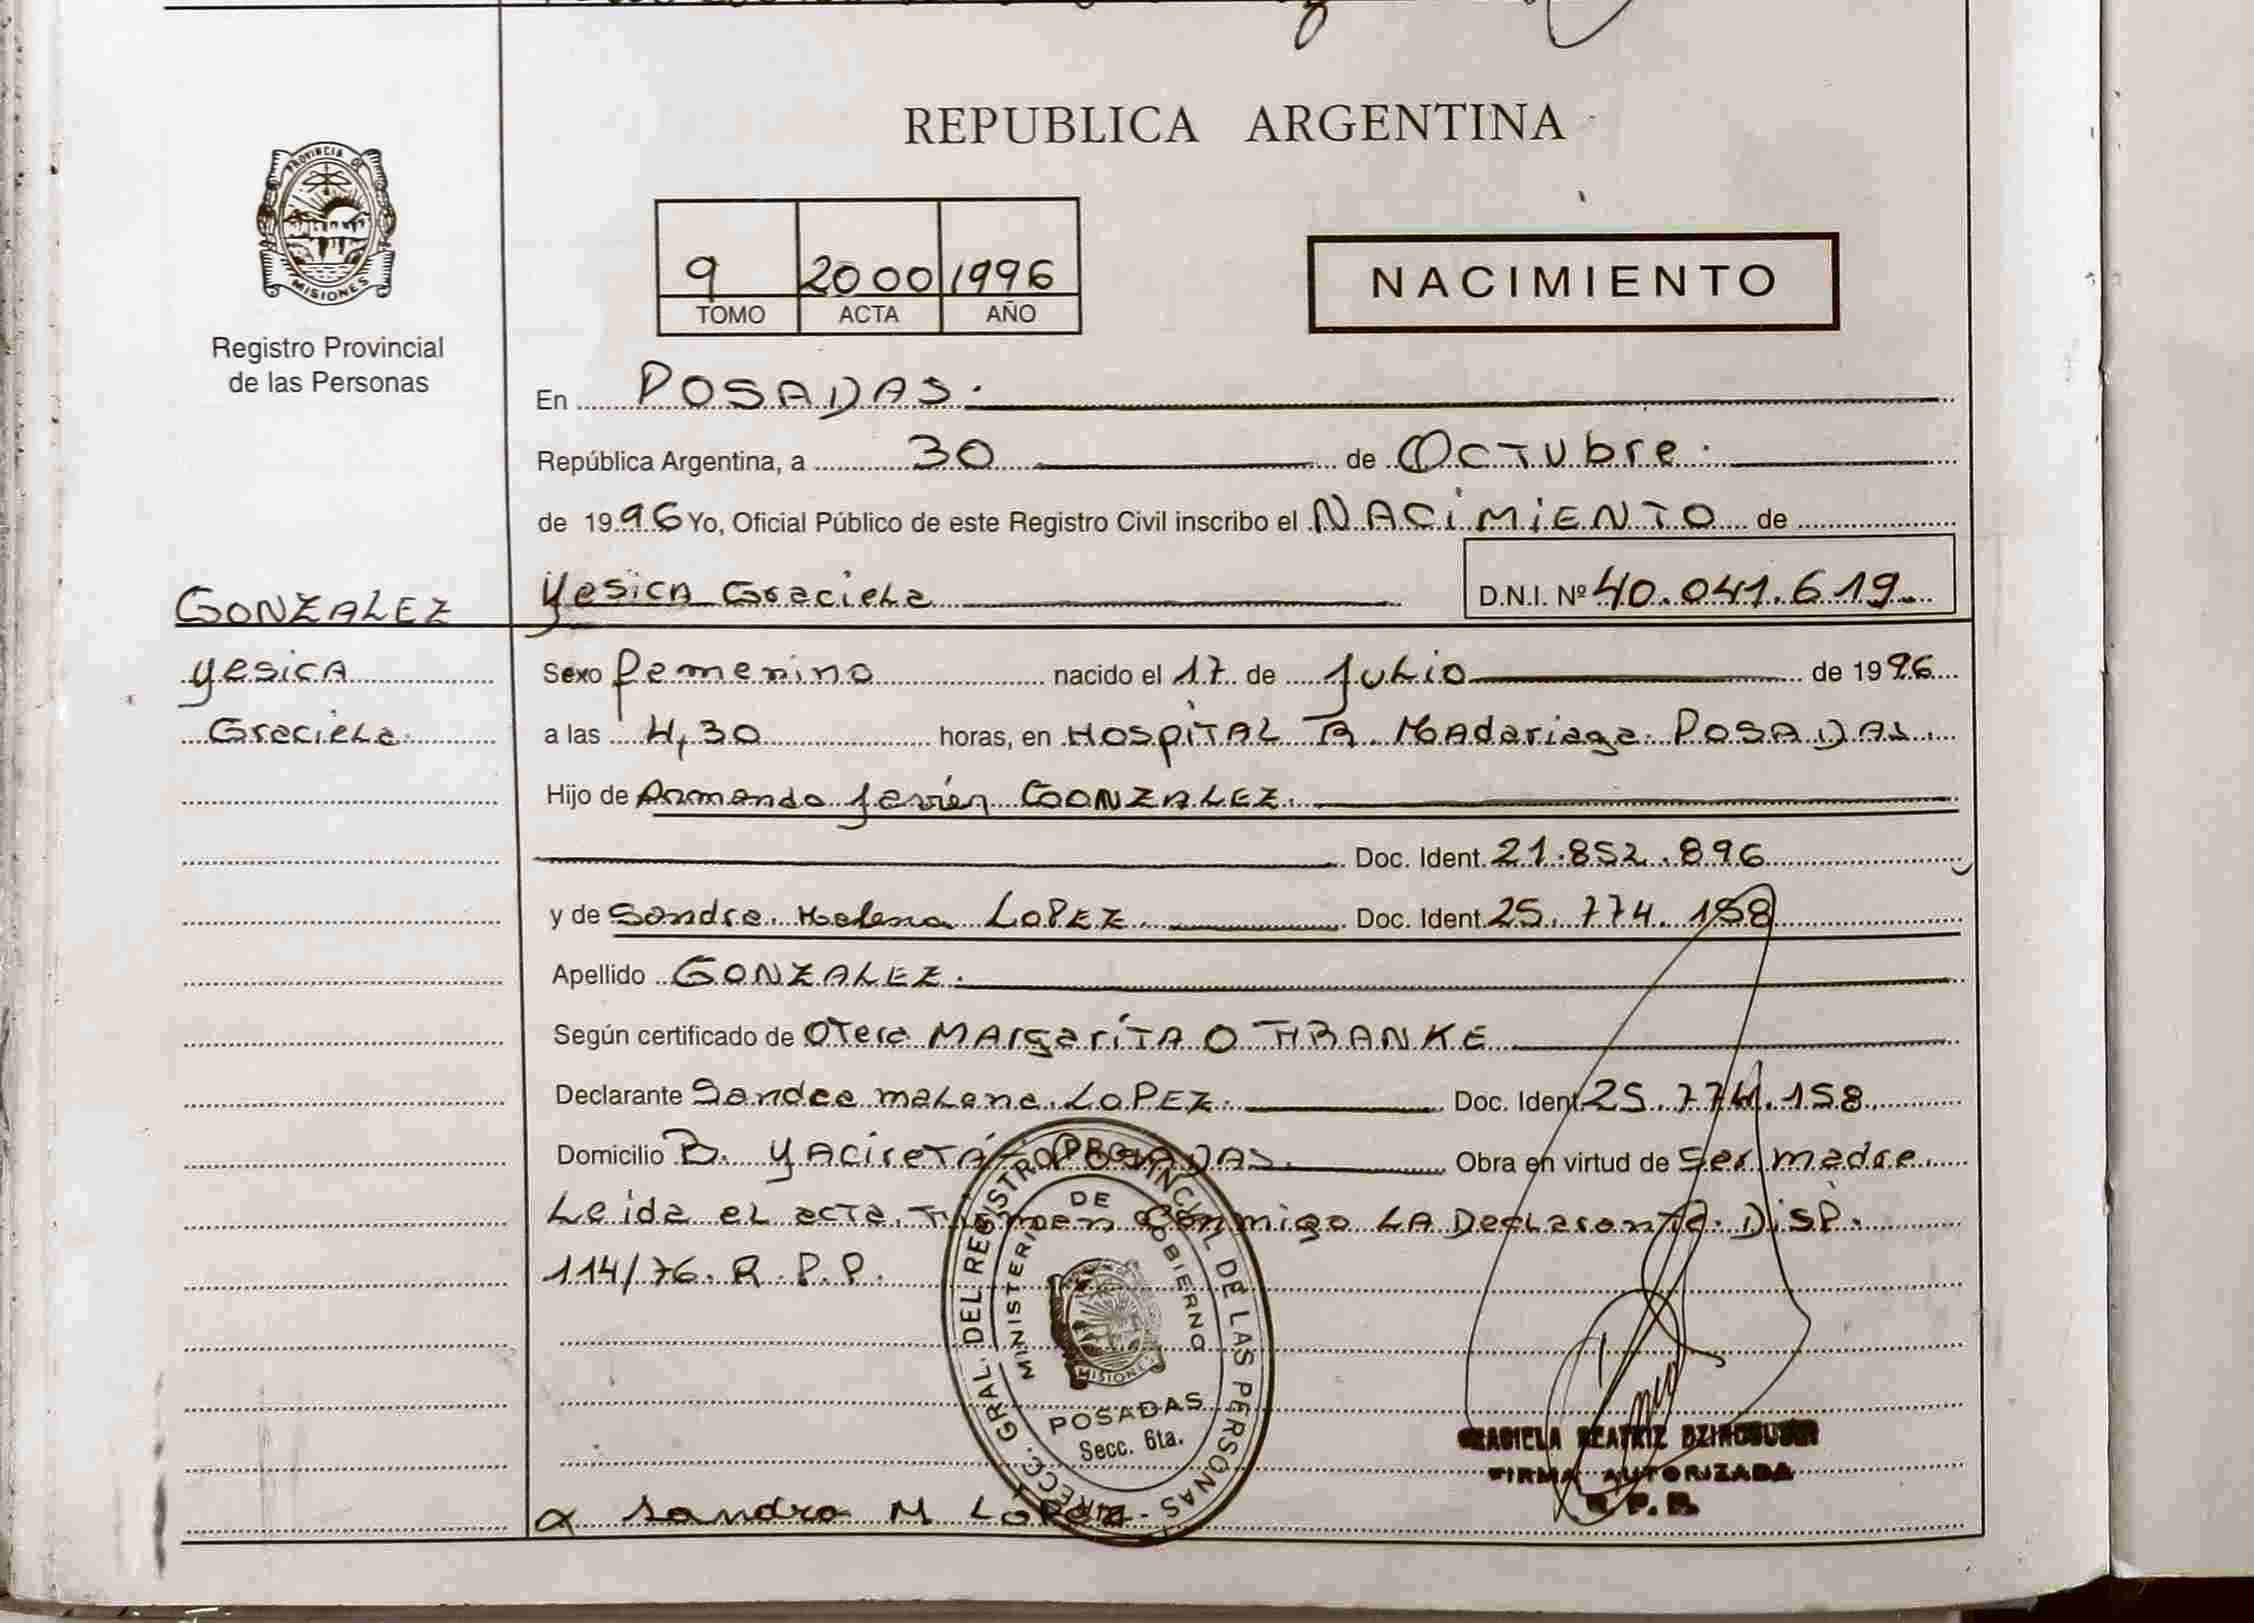 PROVINCIA DE
MISIONES
Registro Provincial
de las Personas
REPUBLICA ARGENTINA
9 2000 1996
TOMO ACTA AÑO
NACIMIENTO
En POSADAS.
República Argentina, a 30 de Octubre.
de 1996 Yo, Oficial Público de este Registro Civil inscribo el NACIMIENTO de
GONZALEZ
Yesica Graciela D.N.I. Nº 40.041.619
Yesica
Graciela
Sexo Femenino nacido el 17 de Julio de 1996
a las 4,30 horas, en HOSPITAL R. Madariaga POSADAS.
Hijo de Armando Javier GONZALEZ.
Doc. Ident. 21.852.896
y de Sandra Malena LOPEZ. Doc. Ident. 25.774.158
Apellido GONZALEZ.
Según certificado de Otera MArgarita O THRANKE
Declarante Sandra malena LOPEZ. Doc. Ident. 25.774.158
Domicilio B. YACiretá POSADAS. Obra en virtud de ser madre.
Leida el acta, Firman Conmigo LA Declarante. Disp.
114/76. R.P.P.
DIRECC. GRAL. DEL REGISTRO PROVINCIAL DE LAS PERSONAS
MINISTERIO DE GOBIERNO
MISIONES
POSADAS
Secc. 6ta.
GRACIELA BEATRIZ
FIRMA AUTORIZADA
R.P.P.
Sandra M Lopez.